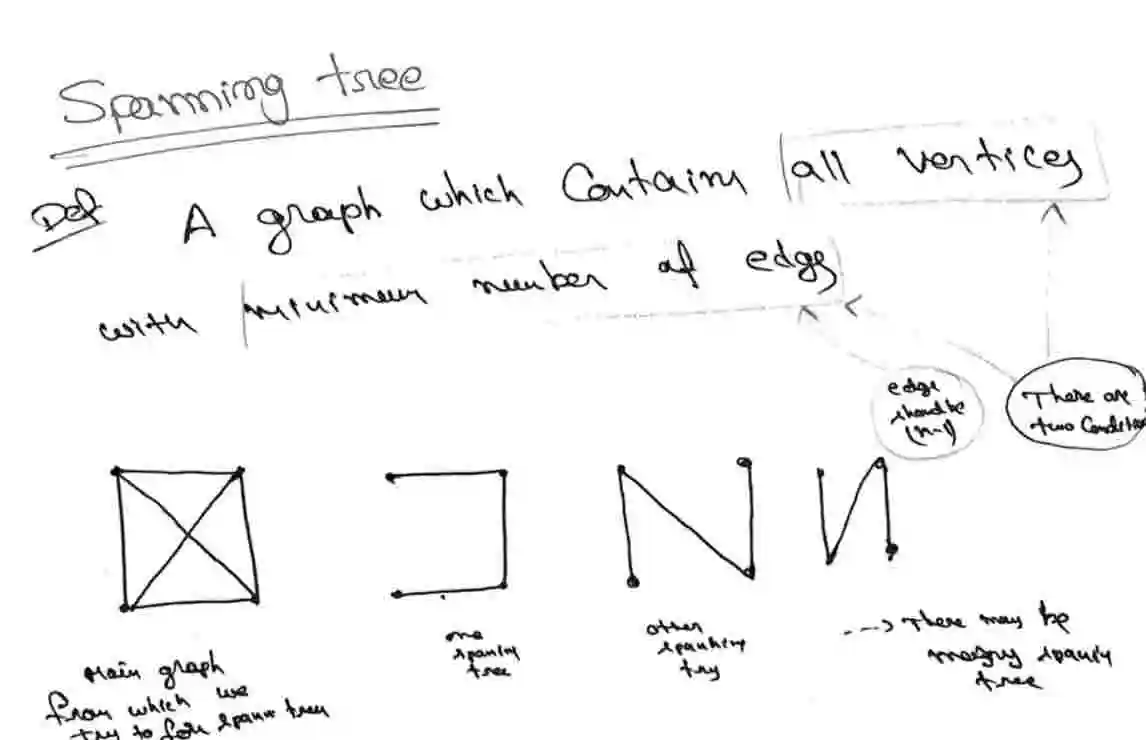 Spanning tree
Def A graph which Contains all vertices
with minimum number of edge
edge
should be
(n-1)
There are
two Condition
Main graph
from which we
try to for spann tree
one
spanin
tree
other
spanning
try
---> There may be
many spanin
tree